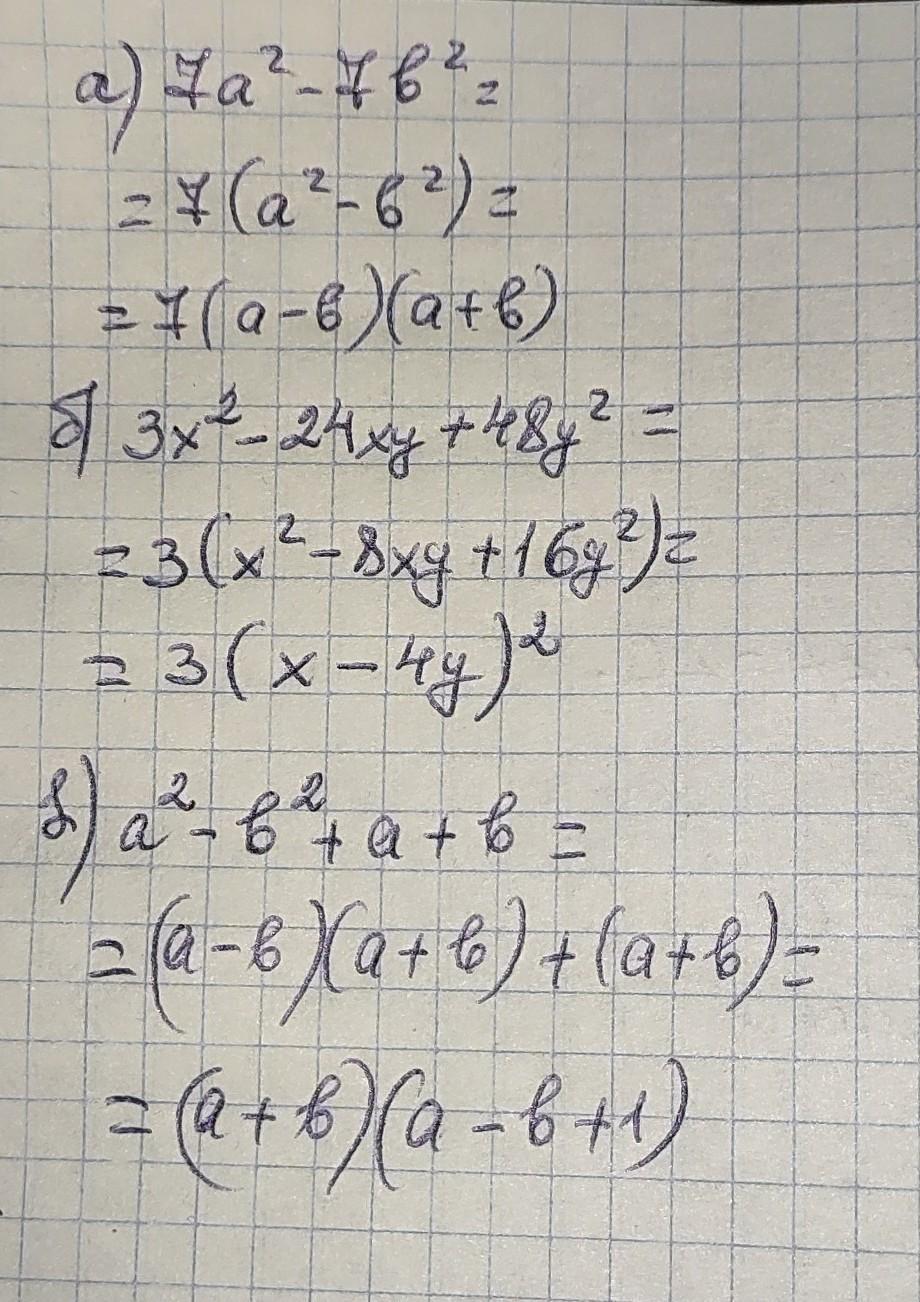 а) 7a² - 7b² =
= 7(a² - b²) =
= 7(a - b)(a + b)
б) 3x² - 24xy + 48y² =
= 3(x² - 8xy + 16y²) =
= 3(x - 4y)²
в) a² - b² + a + b =
= (a - b)(a + b) + (a + b) =
= (a + b)(a - b + 1)